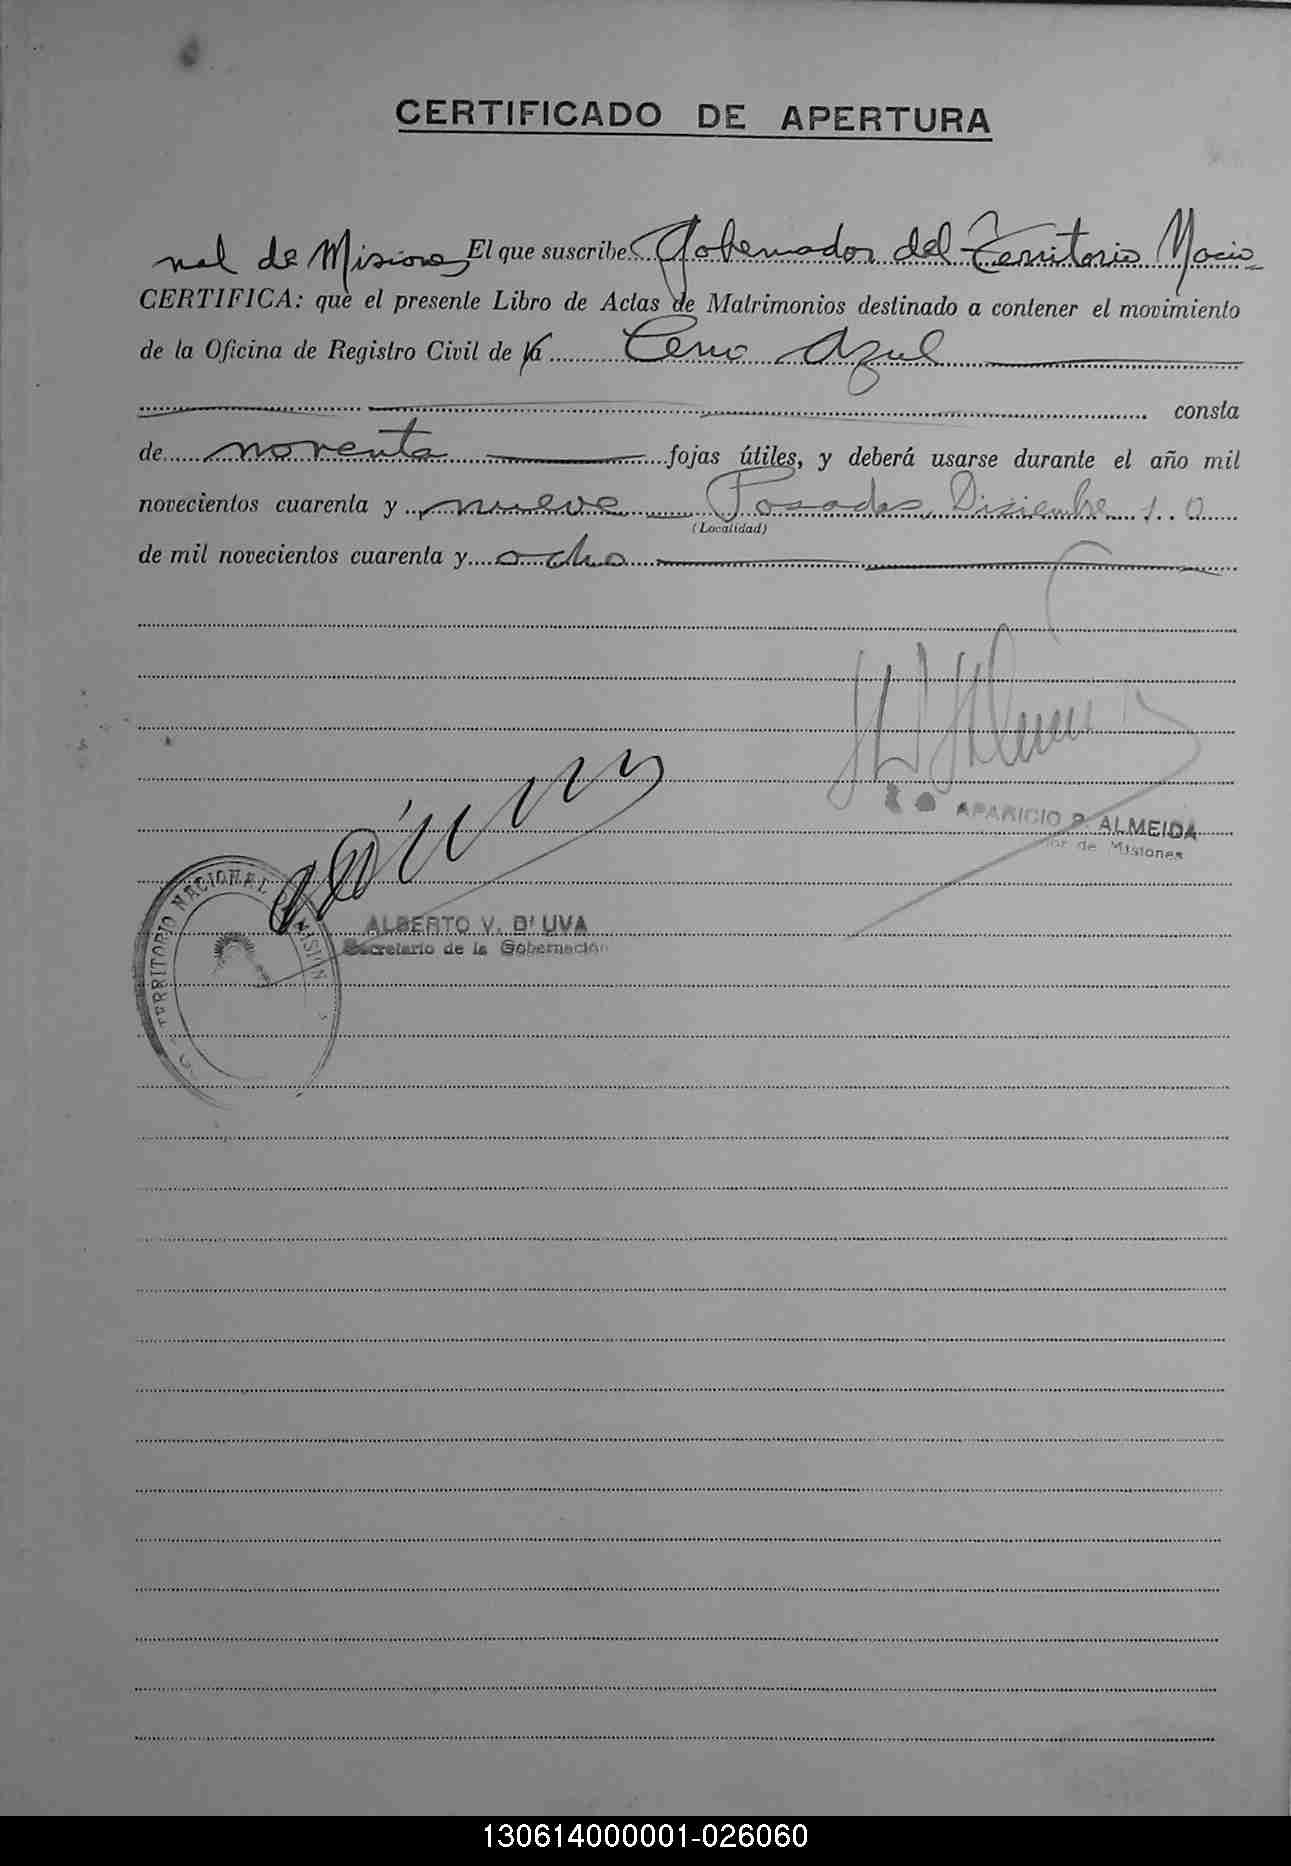 CERTIFICADO DE APERTURA
El que suscribe Gobernador del Territorio Nacio-
nal de Misiones
CERTIFICA: que el presente Libro de Actas de Matrimonios destinado a contener el movimiento
de la Oficina de Registro Civil de la Cerro Azul
consta
de noventa fojas útiles, y deberá usarse durante el año mil
novecientos cuarenta y nueve Posadas, Diciembre 10
(Localidad)
de mil novecientos cuarenta y ocho
APARICIO P. ALMEIDA
de Misiones
ALBERTO V. D' UVA
Secretario de la Gobernación
TERRITORIO NACIONAL MISION
130614000001-026060